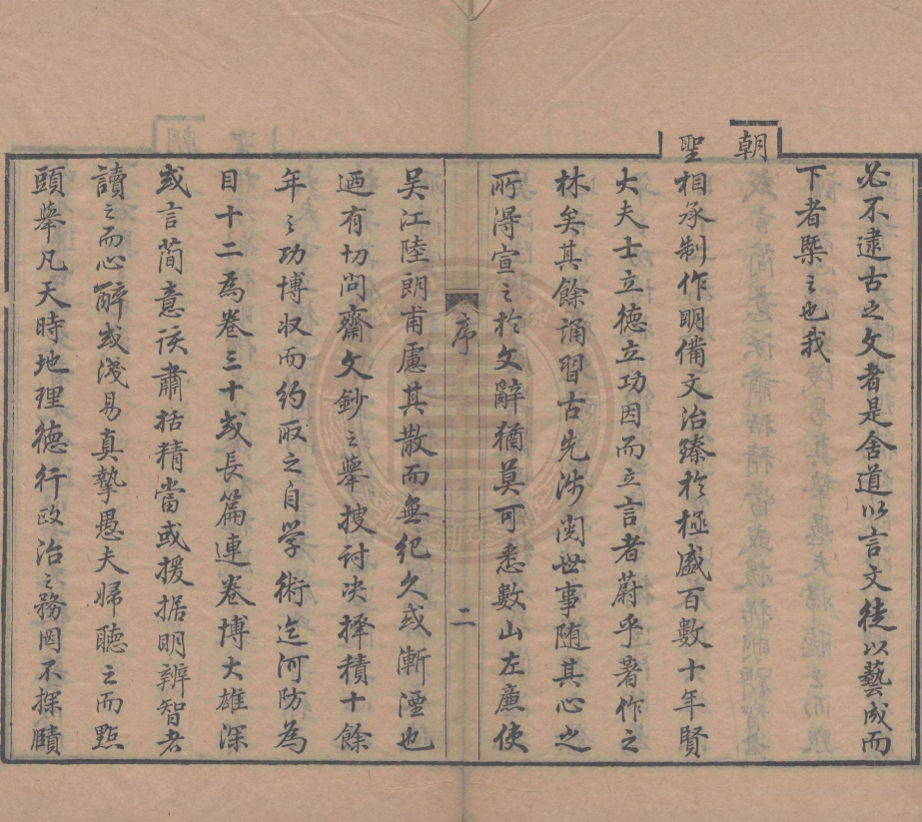 必不逮古之文者是舍道以言文徒以藝成而
下者槩之也我
朝
聖相承制作明備文治臻於極盛百數十年賢
大夫士立德立功因而立言者蔚乎著作之
林矣其餘誦習古先涉閱世事随其心之
所得宣之於文辭猶莫可悉數山左廉使
序
二
吳江陸朗甫慮其散而無紀久或漸湮也
迺有切問齋文鈔之舉搜討决擇積十餘
年之功博収而約取之自学術迄河防為
目十二為卷三十或長篇連卷博大雄深
或言简意该肅括精當或援据明辨智者
讀之而心解或淺易真摯愚夫婦聽之而點
頭舉凡天時地理德行政治之務罔不探賾